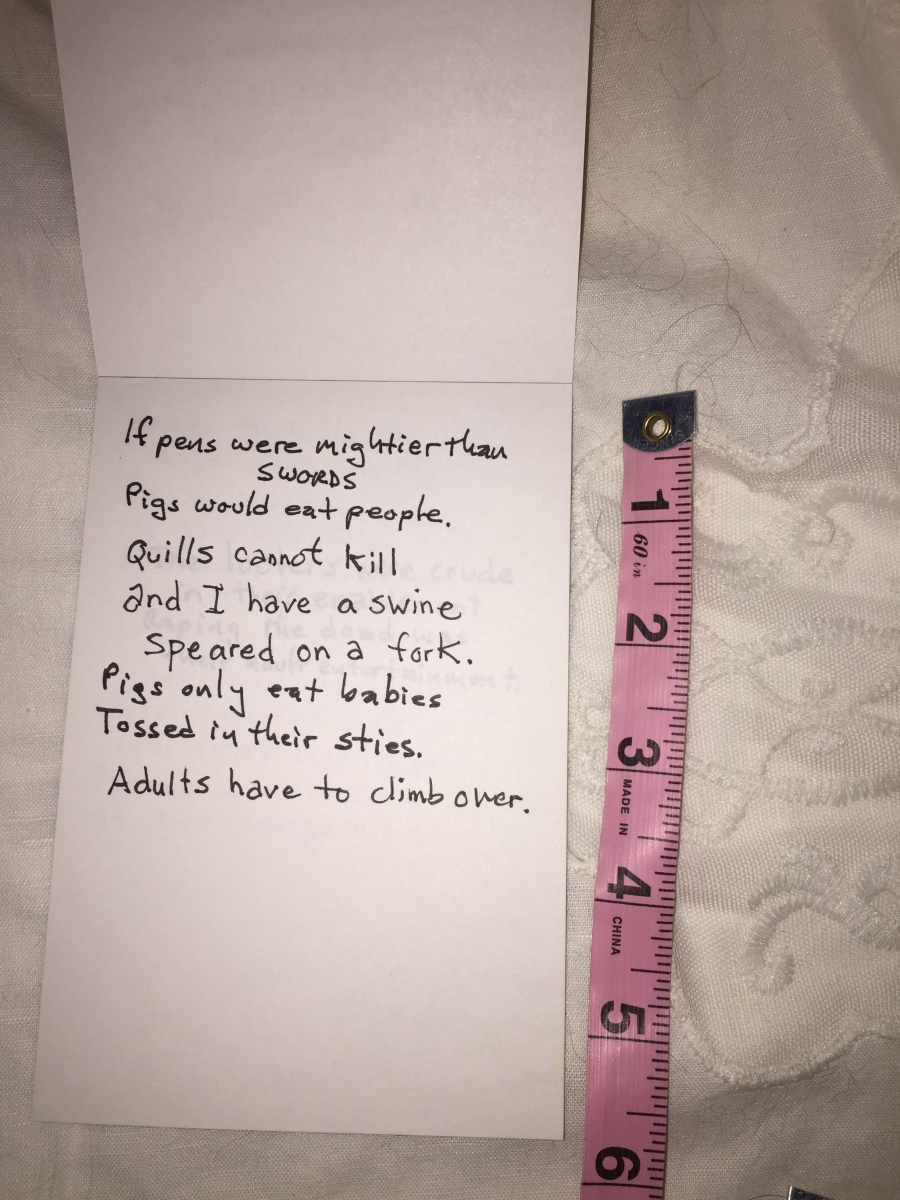 If pens were mightier than
SWORDS
Pigs would eat people.
Quills cannot kill
and I have a swine
Speared on a fork.
Pigs only eat babies
Tossed in their sties.
Adults have to climb over.
1
60 in
2
3
MADE IN
4
CHINA
5
6